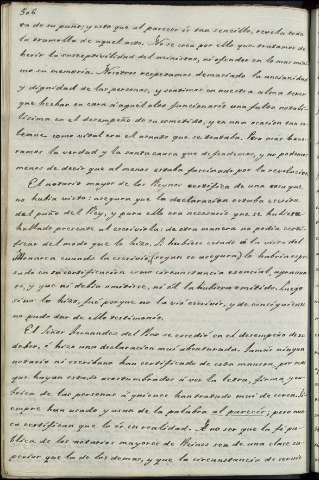 306
ra de su puño; y esto que al parecer es tan sencillo, revela toda
la tramolla de aquel acto. No se crea por ello que tratamos de
herir la susceptividad del ministro, ni ofender en lo mas míni
mo su memoria. Nosotros respetamos demasiado la ancianidad
y dignidad de las personas, y sentimos en nuestra alma tener
que hechar en cara á aquel alto funcionario una falta notabi
lísima en el desempeño de su cometido, y en una ocasion tan so
lemne como vital era el acto que se trataba. Pero mas hon
ramos la verdad y la santa causa que defendemos, y no podemos
menos de decir que al menos estaba fascinado por la revolucion.
El notario mayor de los Reynos certifica de una cosa que
no habia visto: asegura que la declaracion estaba escrita
del puño del Rey, y para ello era necesario que se hubiera
hallado presente al escribirla: de otra manera no podia certi
ficar del modo que lo hizo. Si hubiera estado á la vista del
Monarca cuando la escribia (segun se asegura) lo habria espre
sado en su certificacion como circunstancia esencial,
y que no debia omitirse, ni él la hubiera omitido. Luego
si no lo hizo, fue porque no la vió escribir, y de consiguiente
no pudo dar de ello testimonio.
El Señor Fernandez del Pino se excedió en el desempeño de su
deber, ó hizo una declaracion muy aventurada. Jamás ningun
notario ni escribano han certificado de esta manera, por mas
que hayan estado acostumbrados á ver la letra, firma y rú
brica de las personas á quienes han tratado muy de cerca. Si
empre han usado y usan de la palabra al parecer; pero nun
ca certifican que lo és en realidad. A no ser que la fe pú
blica de los notarios mayores de Reinos sea de una clase su
perior que la de los demas, y que la circunstancia de servir